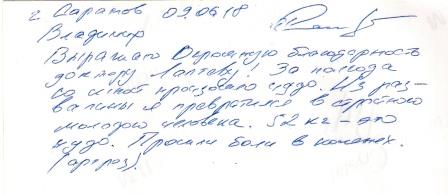 г. Саратов 09.06.18
Владимир
Выражаю Огромную благодарность
доктору Лаптеву! За полгода
со мной произошло чудо. Из раз-
валины я превратился в стройного
молодого человека. 52 кг – это
чудо. Прошли боли в коленях.
(артроз).